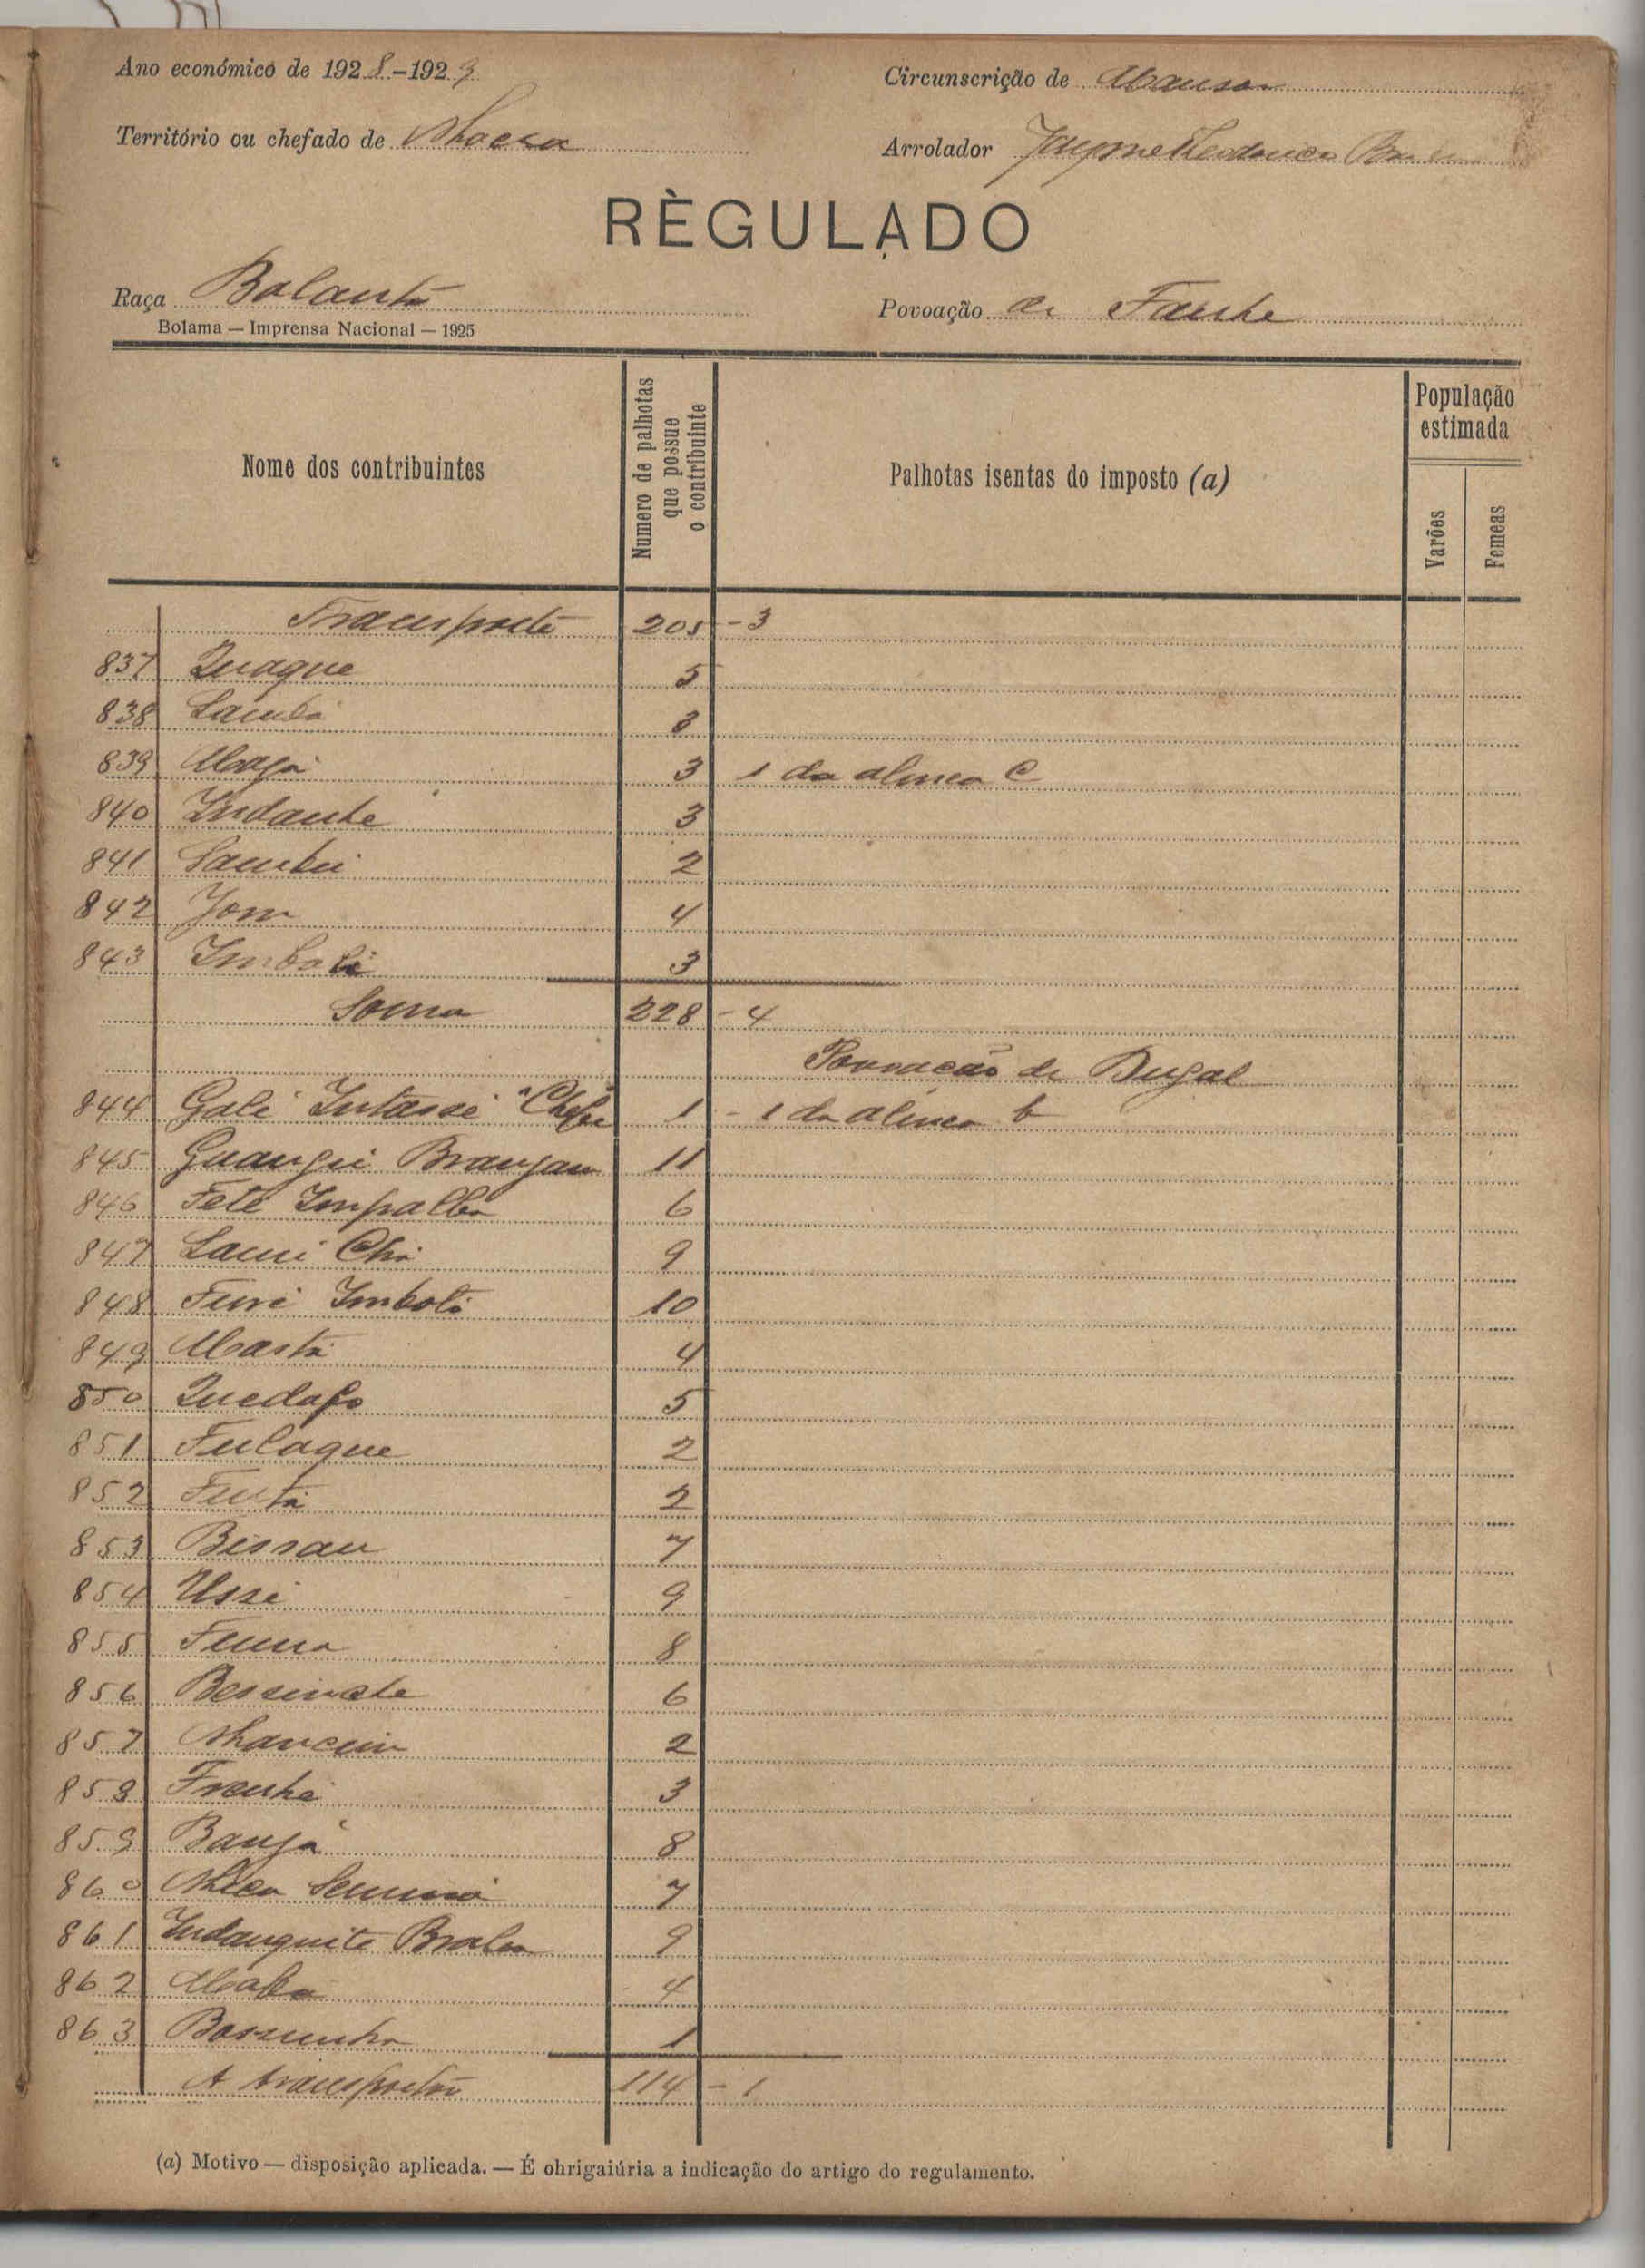 Ano económico de 1928-1929
Circunscrição de Mansoa
Território ou chefado de Nhacra
Arrolador Jayme
RÈGULADO
Raça Balanta
Povoação de Fanhe
Bolama — Imprensa Nacional — 1925
Nome dos contribuintes
Numero de palhotas que possue o contribuinte
Palhotas isentas do imposto (a)
População estimada
Varões
Femeas
Transporte 205 - 3
837 Quaque 5
838 Lambá 3
839 Maja 3 1 da alinea C
840 Indanhe 3
841 2
842 Jom 4
843 Imbali 3
Soma 228 - 4
Povoação de Bugal
844 Galé Intassé "Chefe" 1 - 1 da alinea b
845 Guangui Branjam 11
846 Feté Impalba 6
847 9
848 Furé Imboti 10
849 Masta 4
850 Quedafo 5
851 Fulaque 2
852 2
853 Bissau 7
854 Ussé 9
855 8
856 6
857 2
858 3
859 Banjá 8
860 7
861 Indanquite Brala 9
862 4
863 1
A transportar 114 - 1
(a) Motivo — disposição aplicada. — É ohrigaiúria a indicação do artigo do regulamento.